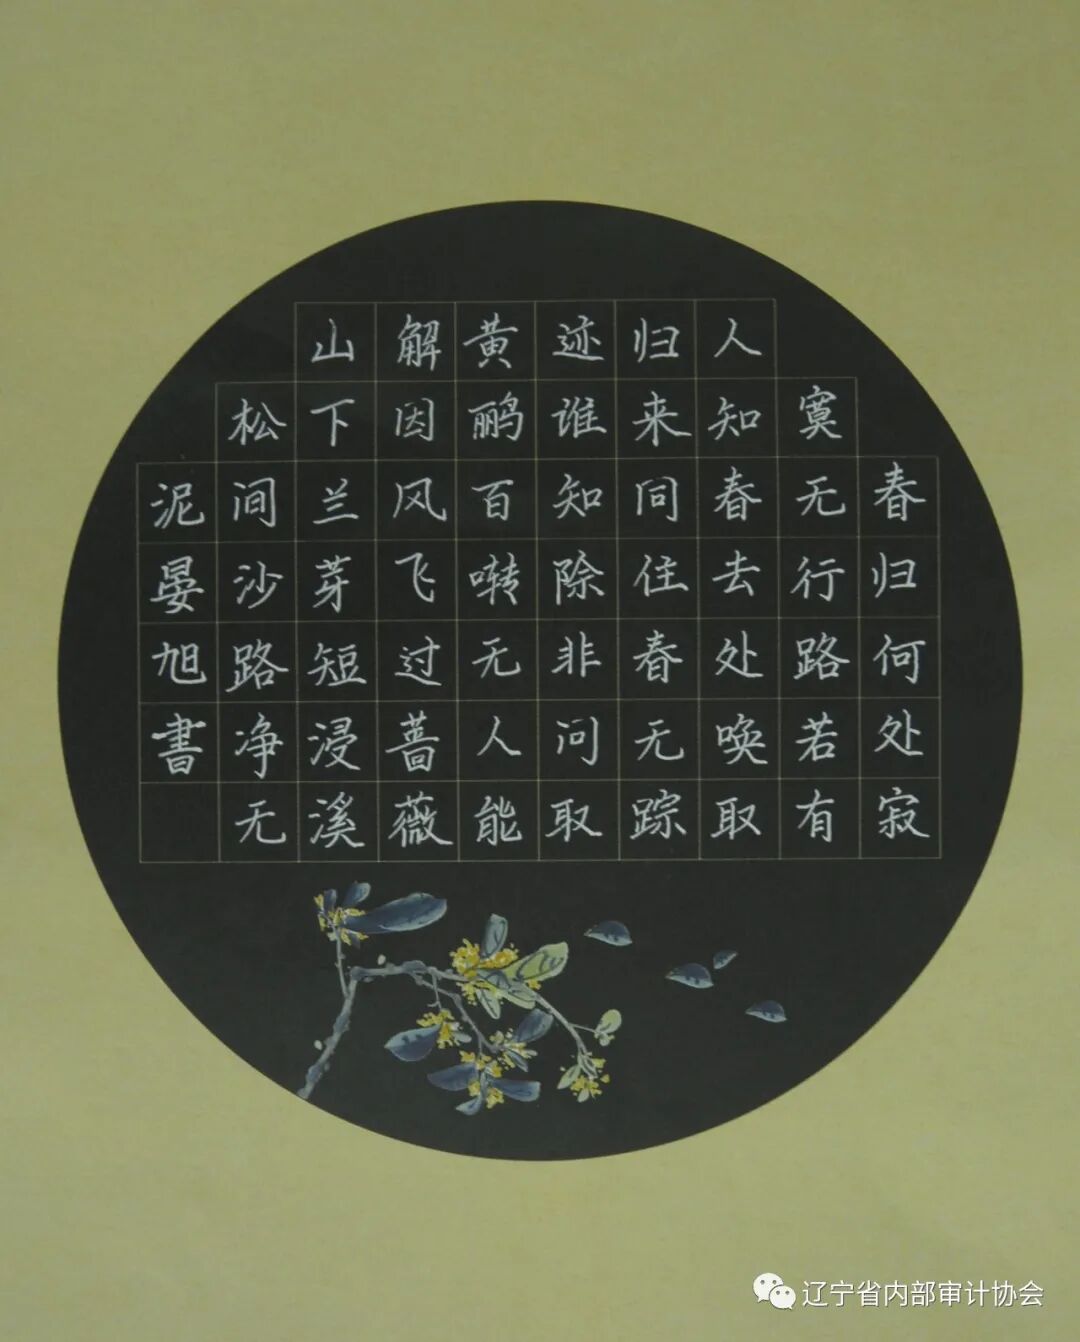 春归何处寂
寞无行路若有
人知春去处唤取
归来同住春无踪
迹谁知除非问取
黄鹂百啭无人能
解因风飞过蔷薇
山下兰芽短浸溪
松间沙路净无
泥晏旭書
辽宁省内部审计协会